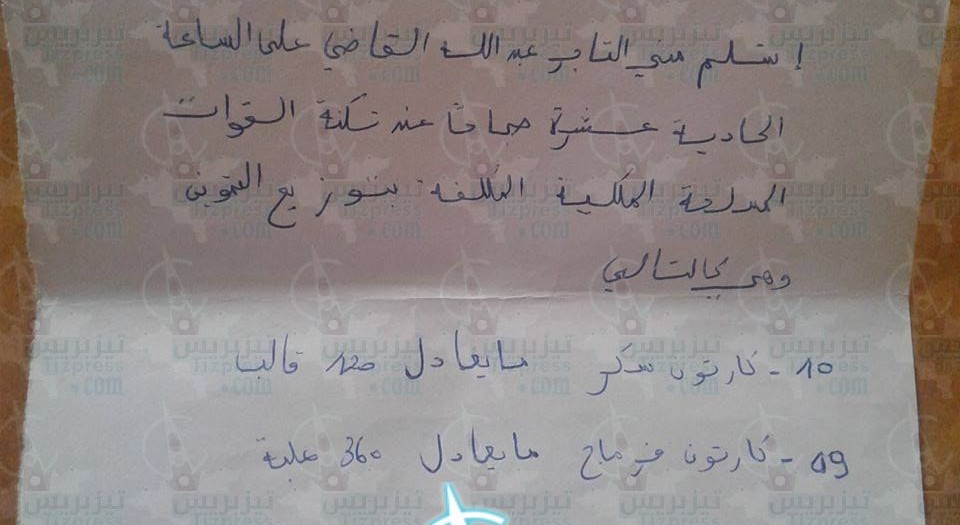 إستلم مني التاجر عبد الله القاضي على الساعة
الحادية عشرة صباحا عند ثكنة القوات
المسلحة الملكية المكلفة بتوزيع التموين
وهي كالتالي
10 - كارتون سكر مايعادل 120 قالب
09 - كارتون فرماج مايعادل 360 علبة
تيزبريس
Tizpress
.com